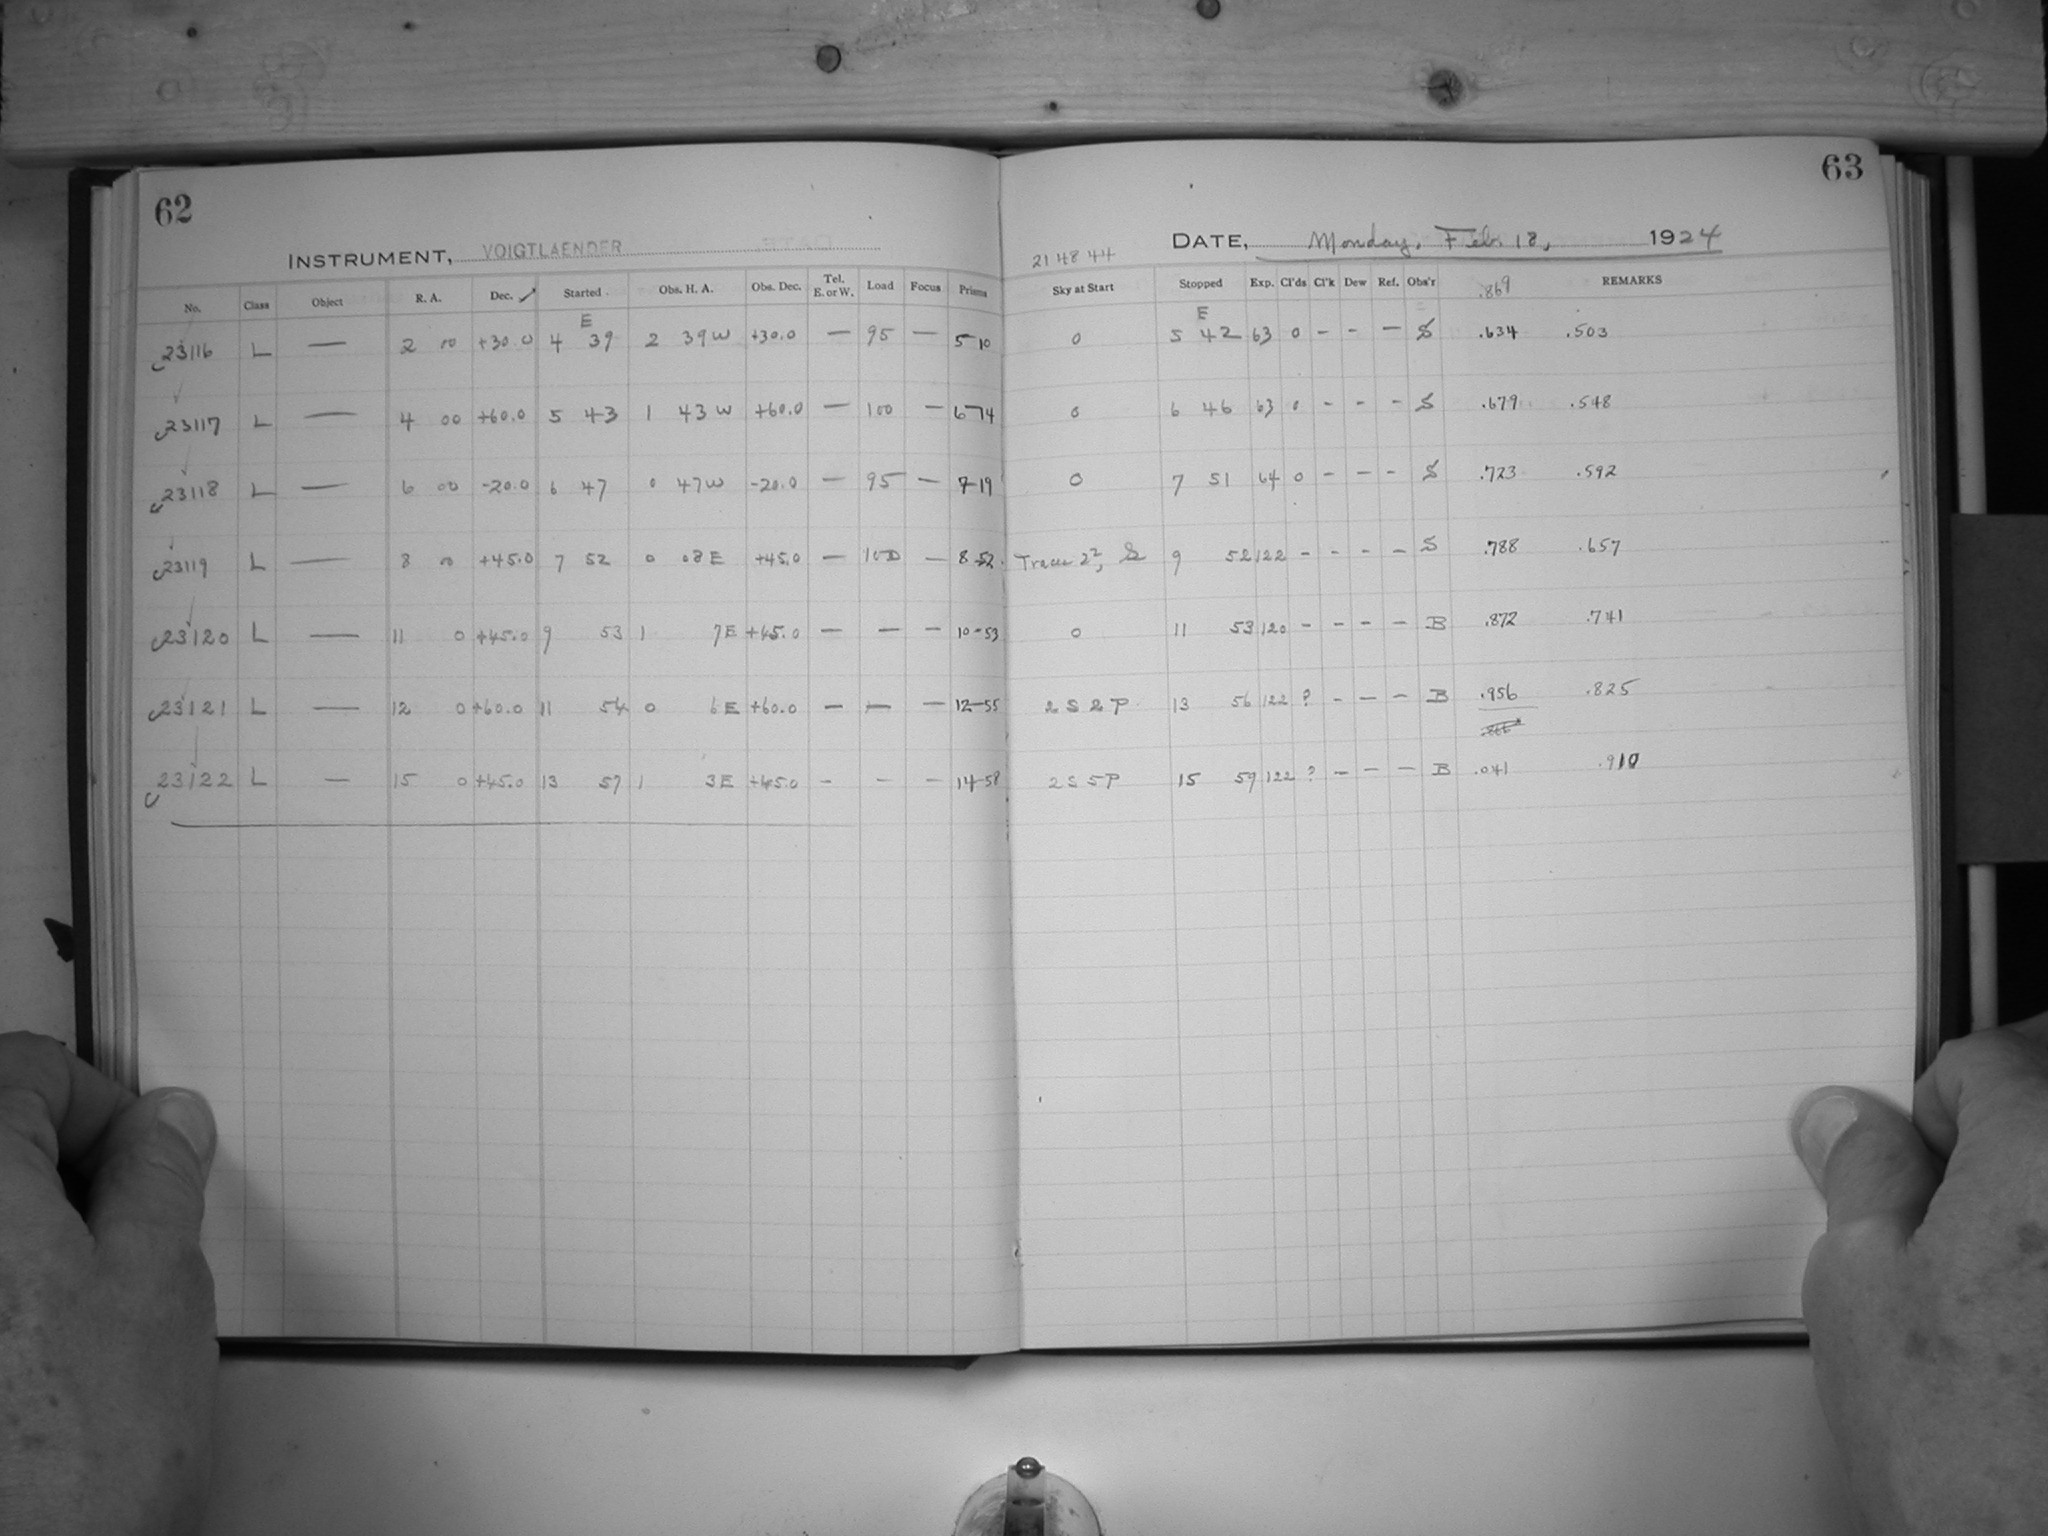 62
INSTRUMENT, VOIGTLAENDER
No. Class Object R. A. Dec. Started Obs. H. A. Obs. Dec. Tel. E. or W. Load Focus Prisms
23116 L — 2 00 +30.0 E 4 39 2 39 W +30.0 — 95 — 5-10
23117 L — 4 00 +60.0 5 43 1 43 W +60.0 — 100 — 6-14
23118 L — 6 00 -20.0 6 47 0 47 W -20.0 — 95 — 7-19
23119 L — 8 00 +45.0 7 52 0 08 E +45.0 — 100 — 8-52
23120 L — 11 0 +45.0 9 53 1 7 E +45.0 — — — 10-53
23121 L — 12 0 +60.0 11 54 0 6 E +60.0 — — — 12-55
23122 L — 15 0 +45.0 13 57 1 3 E +45.0 - - — 14-58
63
21 48 44 DATE, Monday, Feb. 18, 1924
Sky at Start Stopped Exp. Cl'ds Cl'k Dew Ref. Obs'r .869 REMARKS
0 E 5 42 63 0 - - — S .634 .503
0 6 46 63 0 - - - S .679 .548
0 7 51 64 0 - - - S .723 .592
Traces 9 52 122 - - - - S .788 .657
0 11 53 120 - - - - B .872 .741
2 S 2 P 13 56 122 ? - — — B .956 .825
2 S 5 P 15 59 122 ? - — — B .041 .910